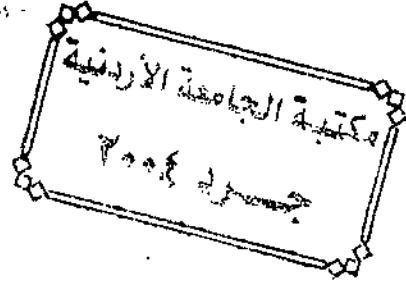 مكتبة الجامعة الأردنية
جرد ٢٠٠٤